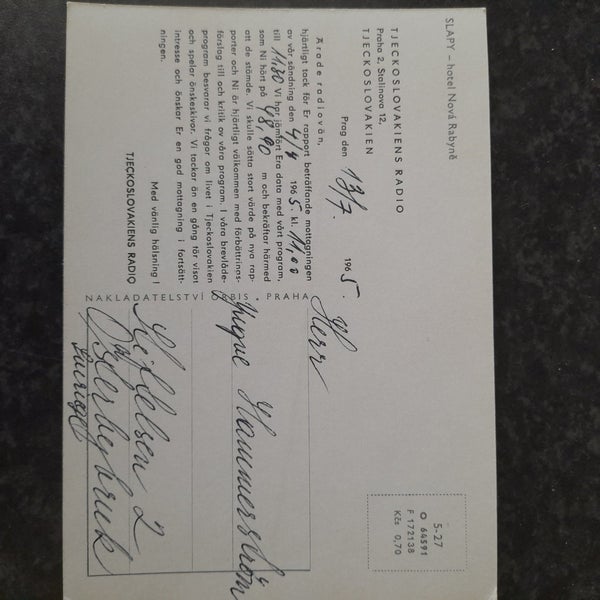 SLAPY – hotel Nová Rabyně
TJECKOSLOVAKIENS RADIO
Praha 2, Stalinova 12,
TJECKOSLOVAKIEN
Prag den 13/7. 1965.
Ärade radiovän,
hjärtligt tack för Er rapport beträffande mottagningen
av vår sändning den 4/7 1965. kl. 11,00
till 11.30 Vi har jämfört Era data med vårt program,
som Ni hört på 48,90 m och bekräftar härmed
att de stämde. Vi skulle sätta stort värde på nya rap-
porter och Ni är hjärtligt välkommen med förbättrings-
förslag till och kritik av våra program. I våra brevlåde-
program besvarar vi frågor om livet i Tjeckoslovakien
och spelar önskeskivor. Vi tackar än en gång för visat
intresse och önskar Er en god mottagning i fortsätt-
ningen.
Med vänlig hälsning!
TJECKOSLOVAKIENS RADIO
NAKLADATELSTVÍ ORBIS, PRAHA
Herr
Yngve Hammerström
2
Österbybruk
Sverige
5-27
O 64591
F 172138
Kčs 0,70